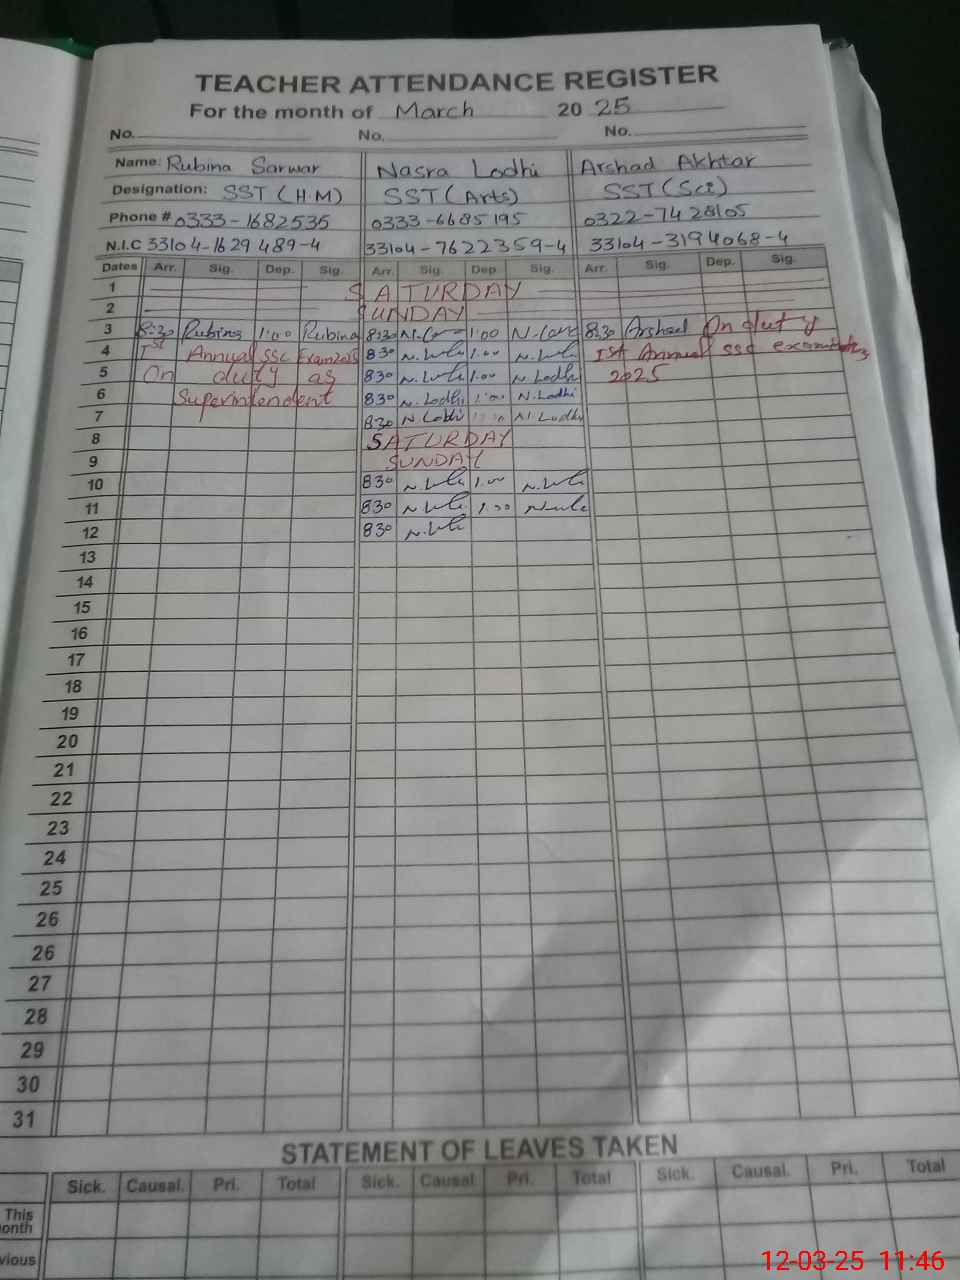 TEACHER ATTENDANCE REGISTER
For the month of March 2025
No. No. No.
Name: Rubina Sarwar Nasra Lodhi Arshad Akhtar
Designation: SST (H.M) SST (Arts) SST (Sci)
Phone # 0333-1682535 0333-6685195 0322-7428105
N.I.C 33104-1629489-4 33104-7622359-4 33104-3194068-4
Dates Arr. Sig. Dep. Sig. Arr. Sig. Dep. Sig. Arr. Sig. Dep. Sig.
1 SATURDAY
2 SUNDAY
3 8:30 Rubina 1:00 Rubina 8:30 1:00 8:30 Arshad On duty
4 1st Annual SSC Exam 2025 8:30 1:00 Ist Annual ssc
5 On duty as 830 1:00 N. Lodhi 2025
6 Superintendent 830 N. Lodhi 1:00 N. Lodhi
7 830 N Lodhi N. Lodhi
8 SATURDAY
9 SUNDAY
10 830 1:00
11 830 1:00
12 830
13
14
15
16
17
18
19
20
21
22
23
24
25
26
26
27
28
29
30
31
STATEMENT OF LEAVES TAKEN
Sick. Causal. Pri. Total Sick. Causal Pri. Total Sick. Causal. Pri. Total
This
onth
vious
12-03-25 11:46